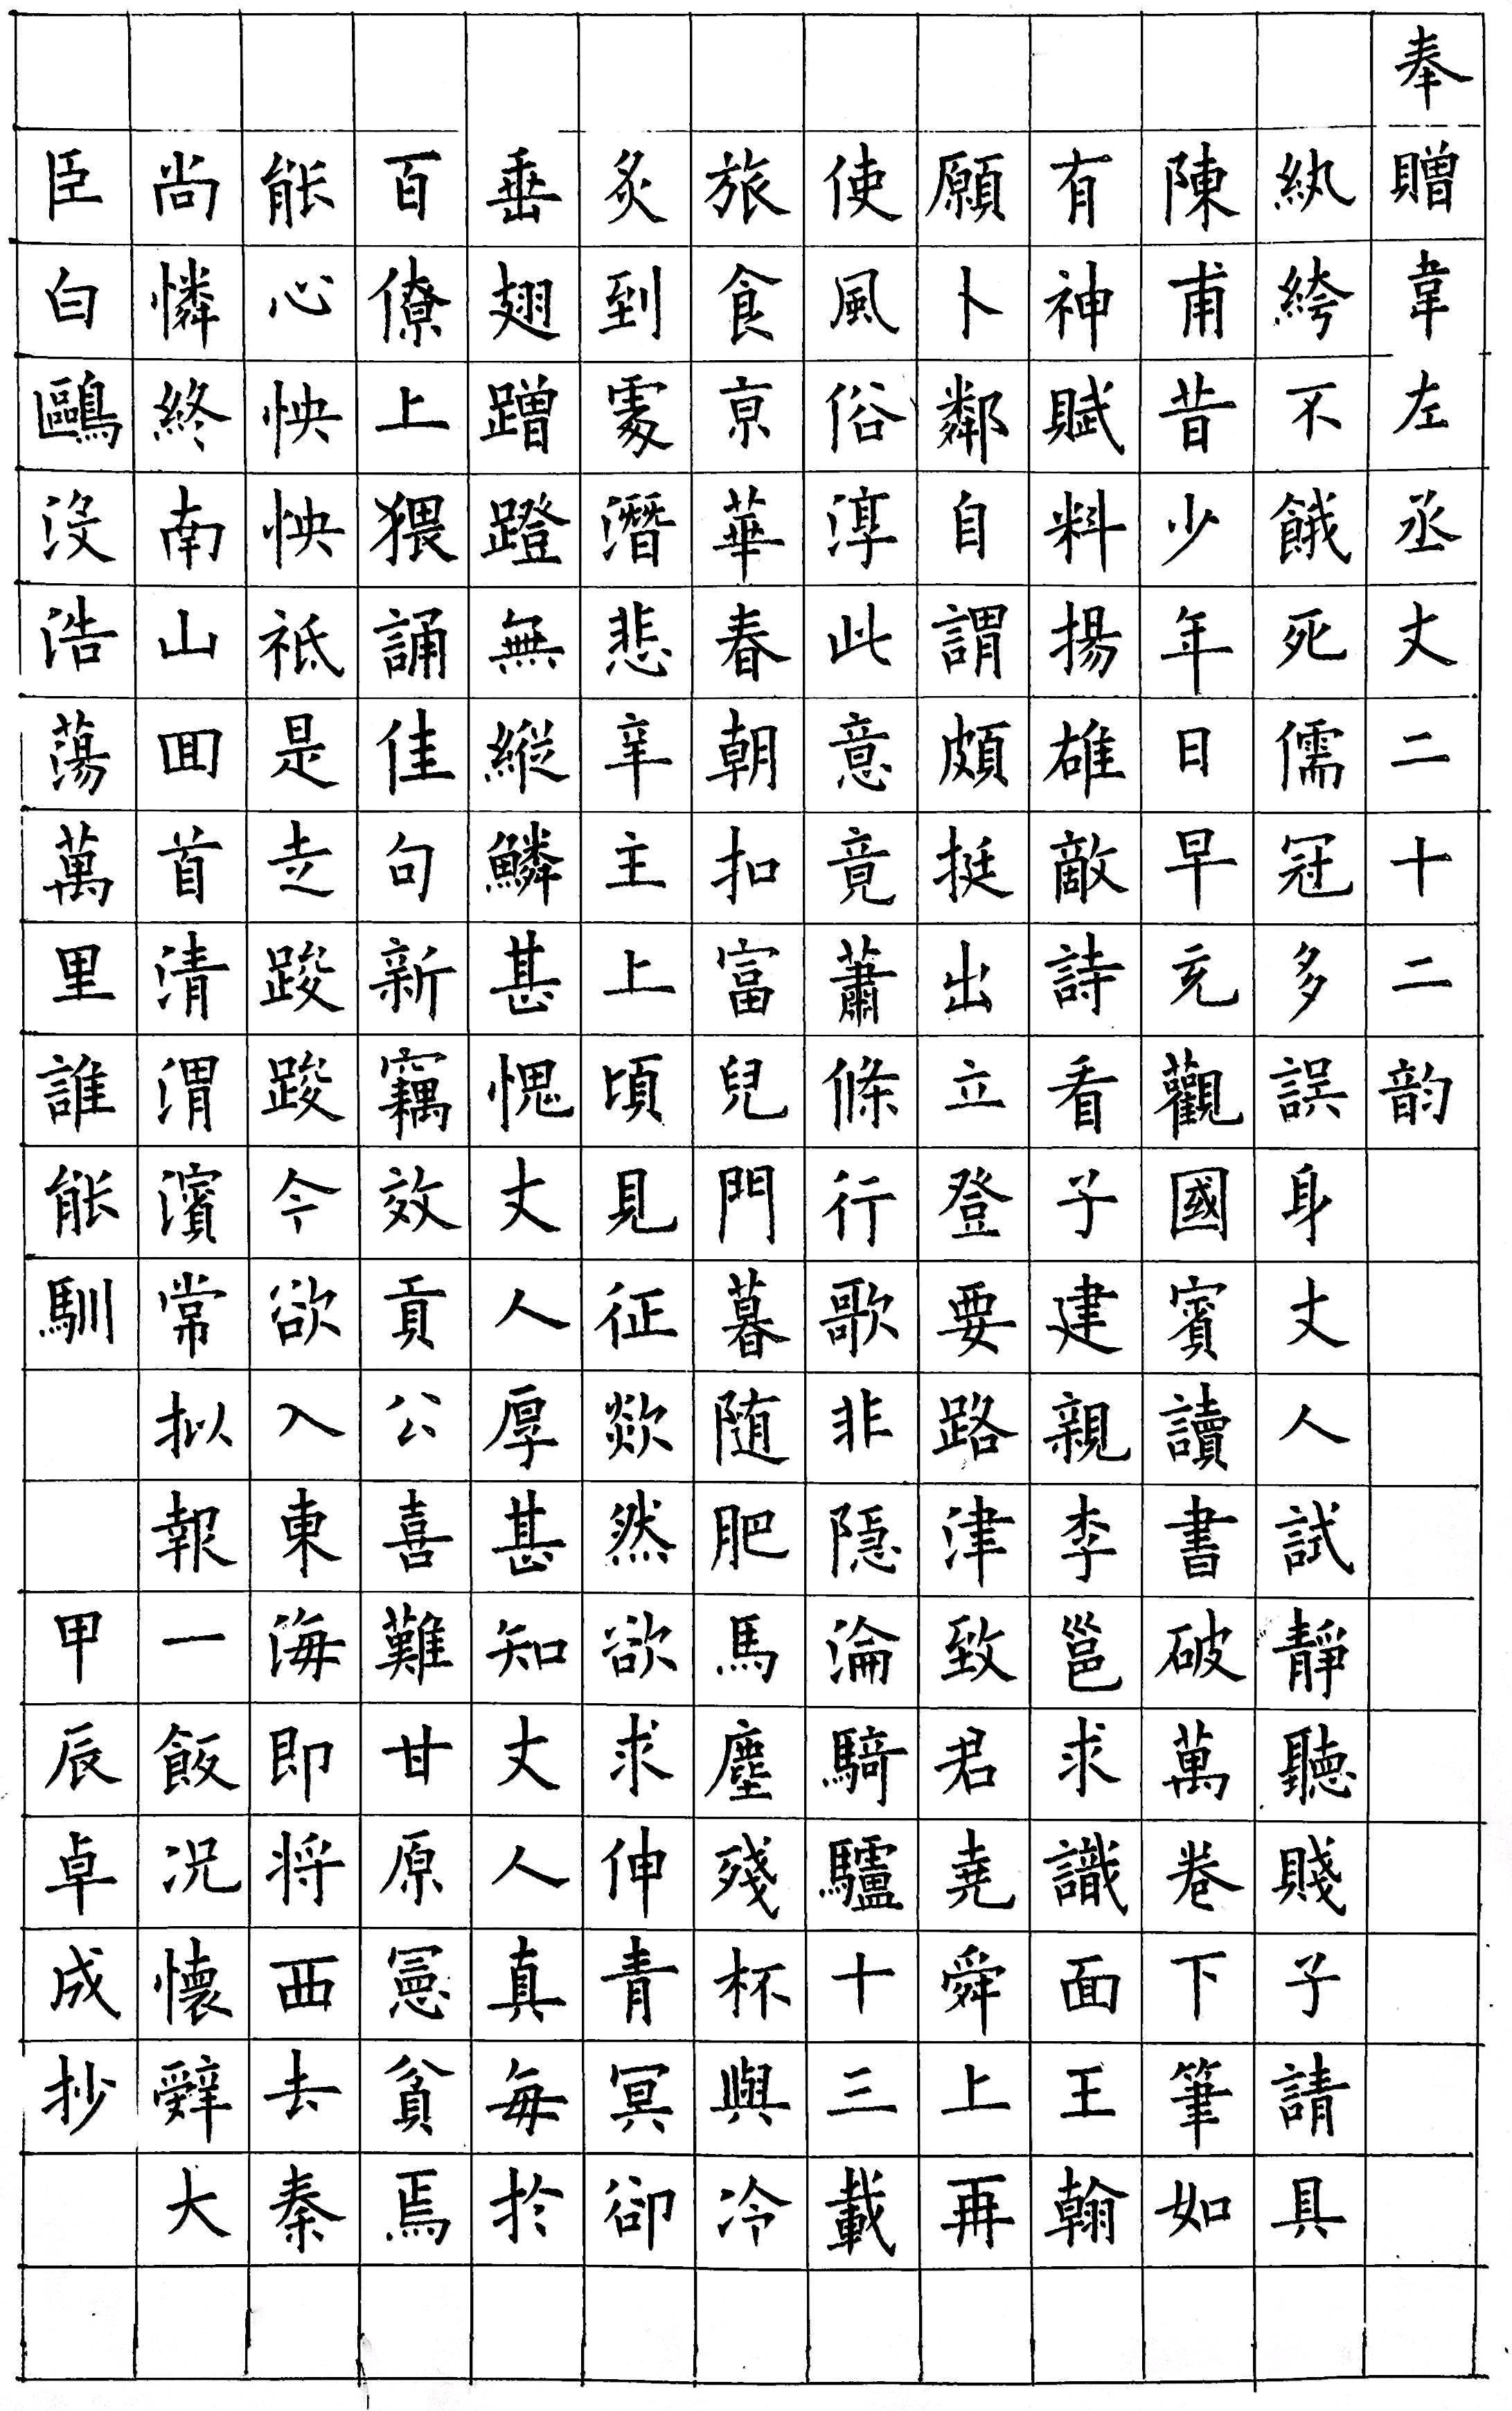 奉贈韋左丞丈二十二韵
紈絝不餓死儒冠多誤身丈人試靜聽賤子請具
陳甫昔少年日早充觀國賓讀書破萬卷下筆如
有神賦料揚雄敵詩看子建親李邕求識面王翰
願卜鄰自謂頗挺出立登要路津致君堯舜上再
使風俗淳此意竟蕭條行歌非隱淪騎驢十三載
旅食京華春朝扣富兒門暮随肥馬塵殘杯與冷
炙到處潛悲辛主上頃見征欻然欲求伸青冥卻
垂翅蹭蹬無縱鱗甚愧丈人厚甚知丈人真每於
百僚上猥誦佳句新竊效貢公喜難甘原憲貧焉
能心怏怏祗是走踆踆今欲入東海即将西去秦
尚憐終南山回首清渭濱常拟報一飯況懷辭大
臣白鷗没浩蕩萬里誰能馴
甲辰卓成抄